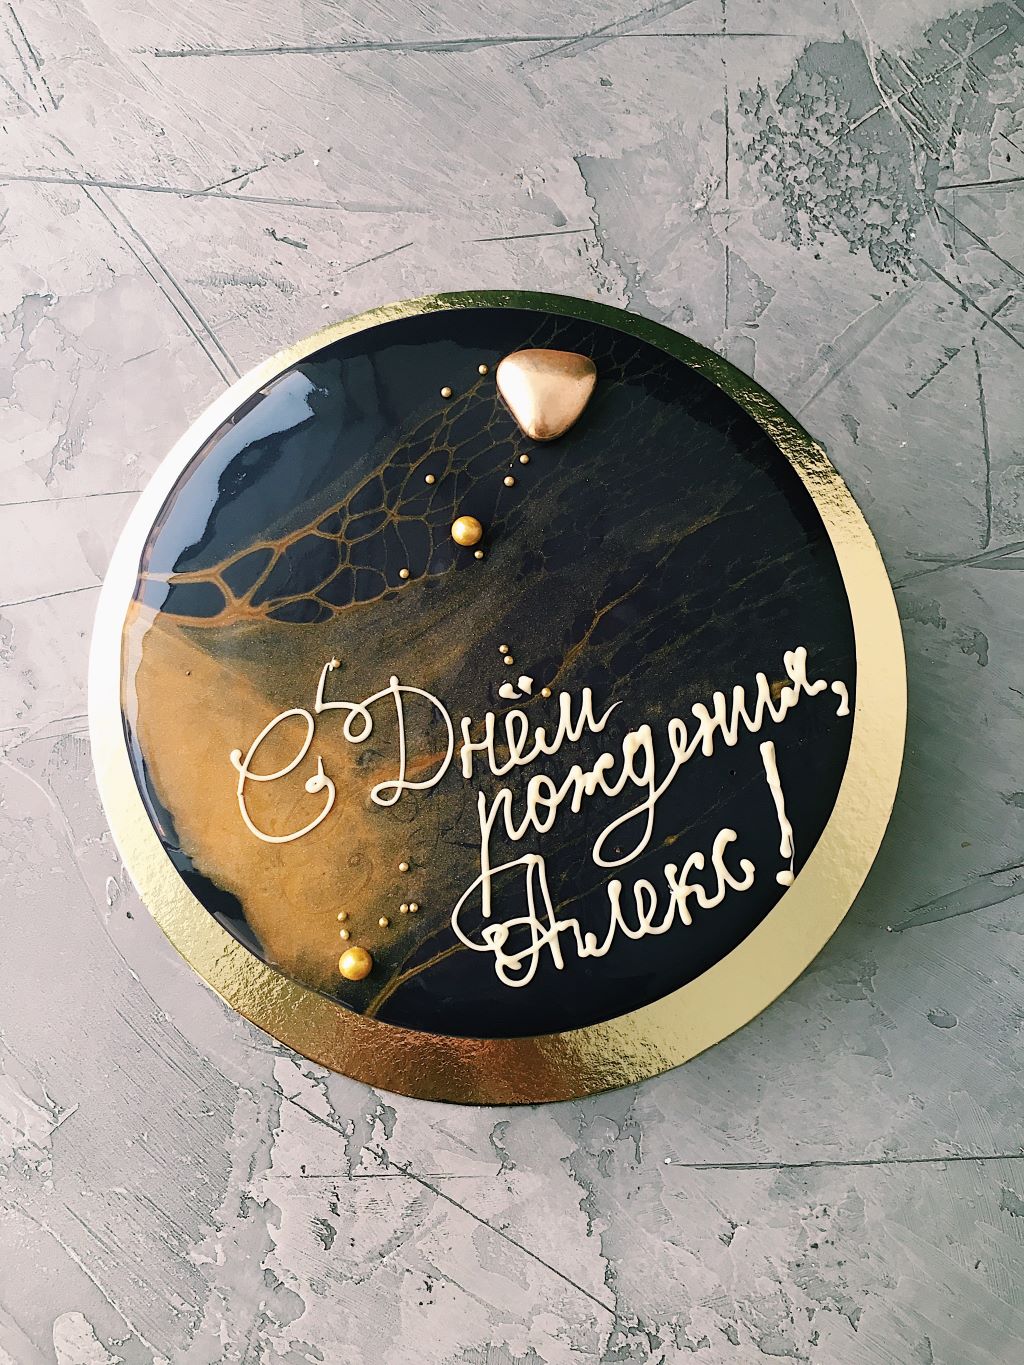 С Днём
рождения,
Алекс!